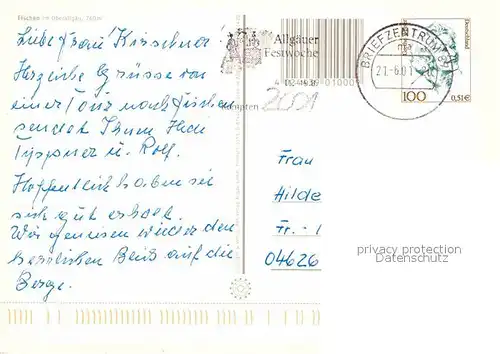 Fischen im Oberallgäu, 760 m
Liebe Frau Kirschner!
Herzliche Grüsse von
einer Tour nach Fischen
sendet Ihnen Ihre
Tippner u. Rolf.
Hoffentlich haben sie
sich gut erholt.
Wir geniesen wieder den
herrlichen Blick auf die
Berge.
Allgäuer
Festwoche
Kempten
2001
BRIEFZENTRUM 87
21.-6.01
Deutschland
100
0,51€
Frau
Hilde
Fr. - 
04626
privacy protection
Datenschutz